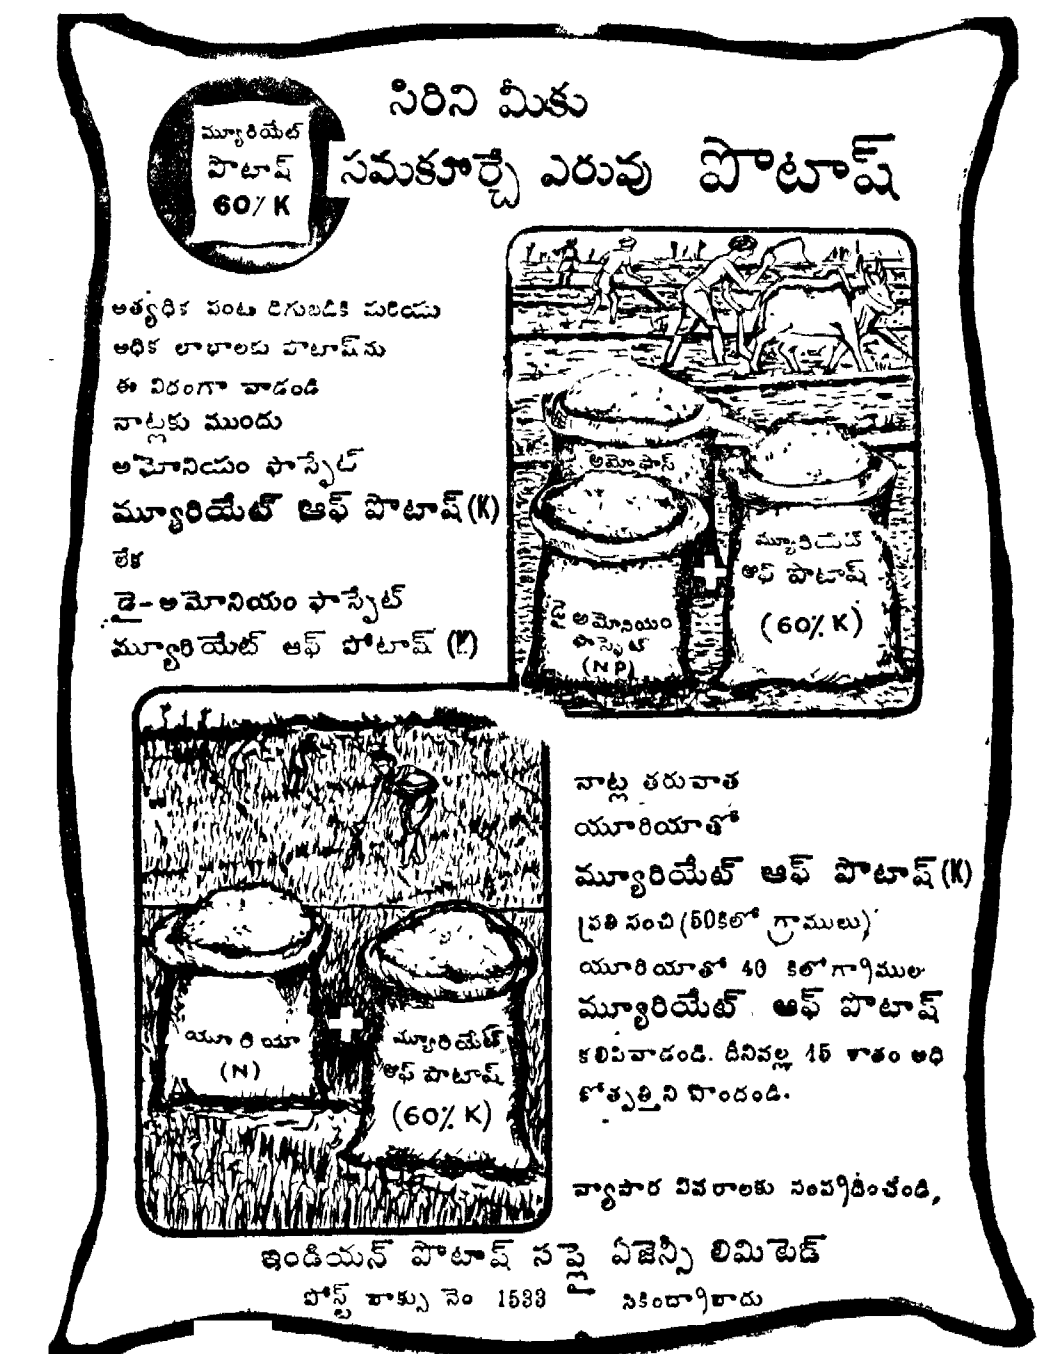 సిరిని మీకు
సమకూర్చే ఎరువు పొటాష్
మ్యూరియేట్
పొటాష్
60% K
అత్యధిక పంట దిగుబడికి మరియు
అధిక లాభాలకు పొటాష్‌ను
ఈ విధంగా వాడండి
నాట్లకు ముందు
అమోనియం ఫాస్ఫేట్
మ్యూరియేట్ ఆఫ్ పొటాష్ (K)
లేక
డై-అమోనియం ఫాస్ఫేట్
మ్యూరియేట్ ఆఫ్ పోటాష్ (K)
అమోఫాస్
డై అమోనియం
ఫాస్ఫేట్
(NP)
+
మ్యూరియేట్
ఆఫ్ పొటాష్
(60% K)
యూరియా
(N)
+
మ్యూరియేట్
ఆఫ్ పొటాష్
(60% K)
నాట్ల తరువాత
యూరియాతో
మ్యూరియేట్ ఆఫ్ పొటాష్ (K)
ప్రతి సంచి (50కిలో గ్రాములు)
యూరియాతో 40 కిలోగ్రాముల
మ్యూరియేట్ ఆఫ్ పొటాష్
కలిపివాడండి. దీనివల్ల 15 శాతం అధి
కోత్పత్తిని పొందండి.
వ్యాపార వివరాలకు సంప్రదించండి,
ఇండియన్ పొటాష్ సప్లై ఏజెన్సీ లిమిటెడ్
పోస్ట్ బాక్సు నెం 1533 సికింద్రాబాదు